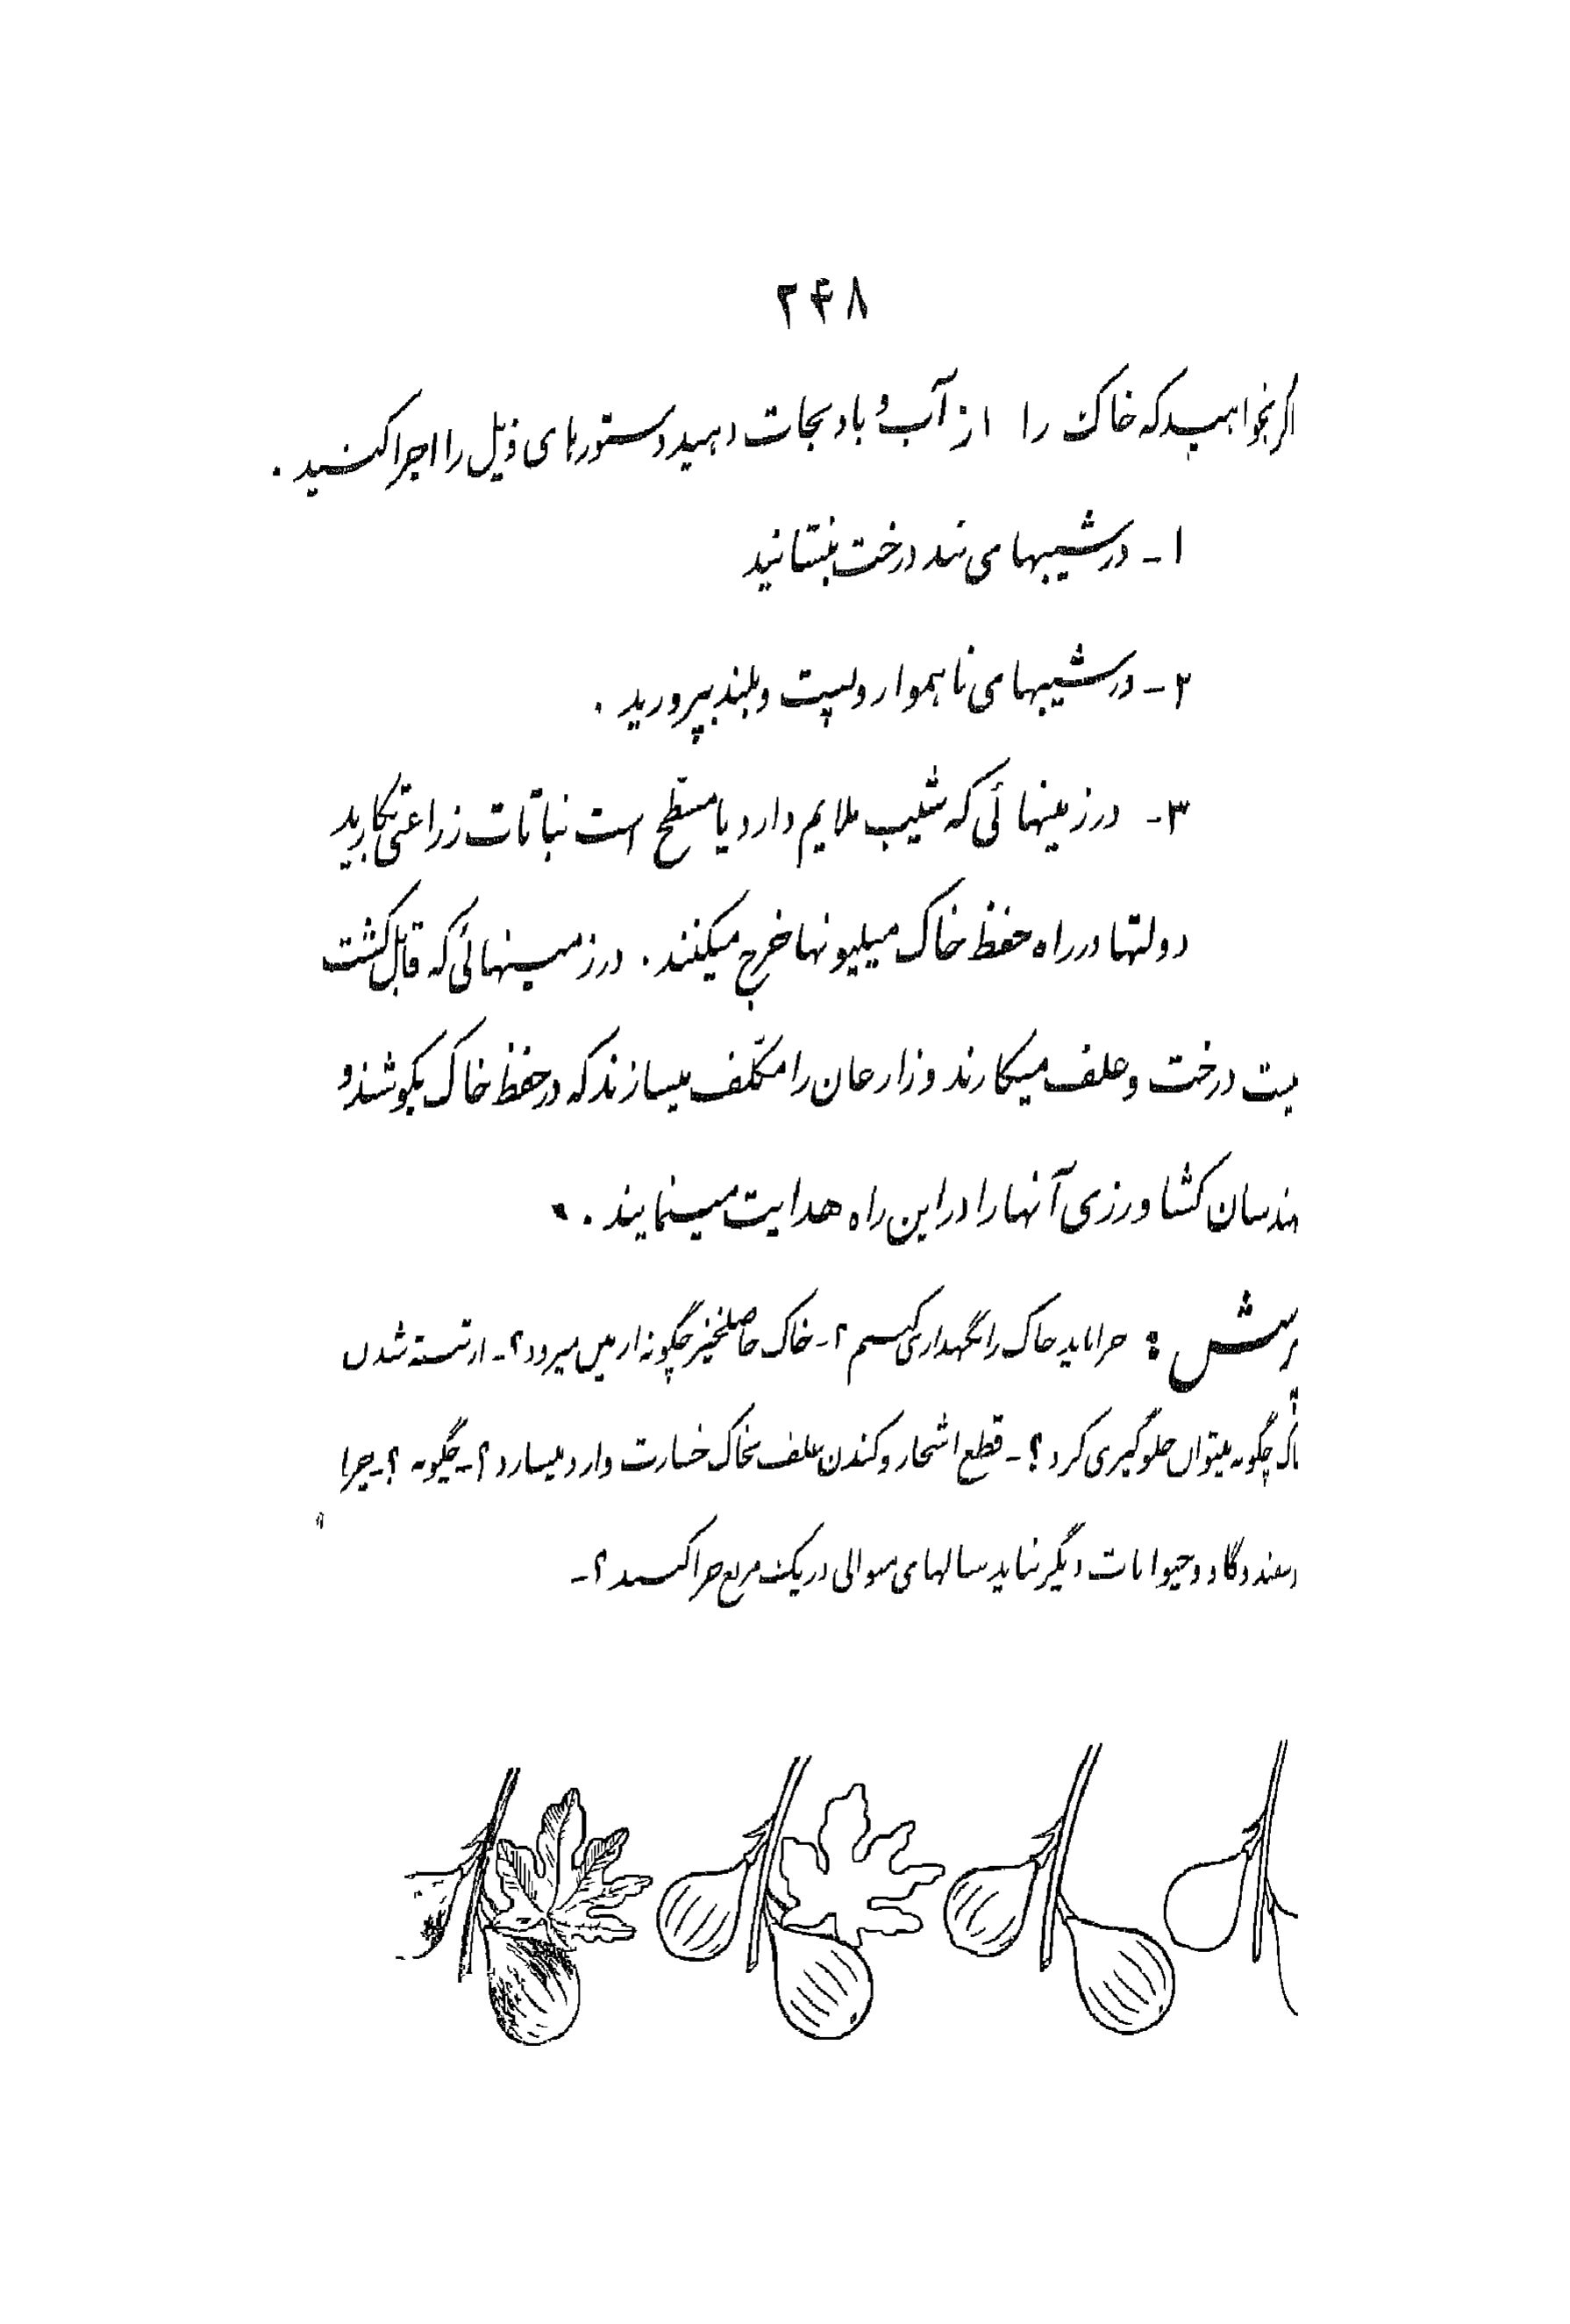 ۲۴۸
اگر بخواهید که خاک را از آب و باد نجات دهید دستورهای ذیل را اجرا کنید .
۱ - در شیبهای تند درخت بنشانید
۲ - در شیبهای ناهموار و پست و بلند بپرورید .
۳ - در زمینهائی که شیب ملایم دارد یا مسطح است نباتات زراعتی بکارید
دولتها در راه حفظ خاک میلیونها خرج میکنند . در زمینهائی که قابل کشت
یست درخت و علف میکارند و زارعان را مکلف میسازند که در حفظ خاک بکوشند و
هندسان کشاورزی آنها را در این راه هدایت مینمایند .
رسش : چرا باید خاک را نگهداری کنیم ؟ - خاک حاصلخیز چگونه از بین میرود ؟ - از شسته شدن
اک چگونه میتوان جلوگیری کرد ؟ - قطع اشجار و کندن علف بخاک خسارت وارد میسازد ؟ - چگونه ؟ - چرا
و گاو و حیوانات دیگر نباید سالهای متوالی در یک مرتع چرا کنند ؟ -